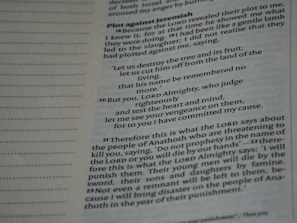 of both Israel
aroused my anger by burning
Plot against Jeremiah
18 Because the LORD revealed their plot to me,
I knew it, for at that time he showed me what
they were doing. 19 I had been like a gentle lamb
led to the slaughter; I did not realise that they
had plotted against me, saying,
'Let us destroy the tree and its fruit;
let us cut him off from the land of the
living,
that his name be remembered no
more.'
20 But you, LORD Almighty, who judge
righteously
and test the heart and mind,
let me see your vengeance on them,
for to you I have committed my cause.
21 Therefore this is what the LORD says about
the people of Anathoth who are threatening to
kill you, saying, 'Do not prophesy in the name of
the LORD or you will die by our hands' – 22 there-
fore this is what the LORD Almighty says: 'I will
punish them. Their young men will die by the
sword, their sons and daughters by famine.
23 Not even a remnant will be left to them, be-
cause I will bring disaster on the people of Ana-
thoth in the year of their punishment.'